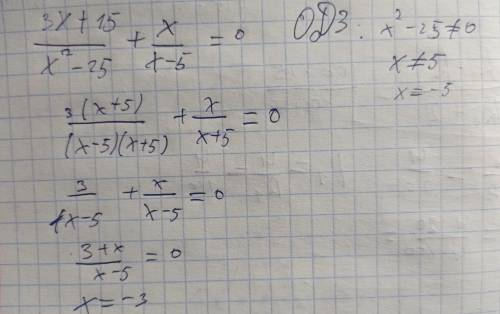 (3x+15)/(x²-25) + x/(x-5) = 0
ОДЗ: x²-25≠0
x≠5
x=-5
3(x+5)/((x-5)(x+5)) + x/(x+5) = 0
3/(x-5) + x/(x-5) = 0
(3+x)/(x-5) = 0
x=-3